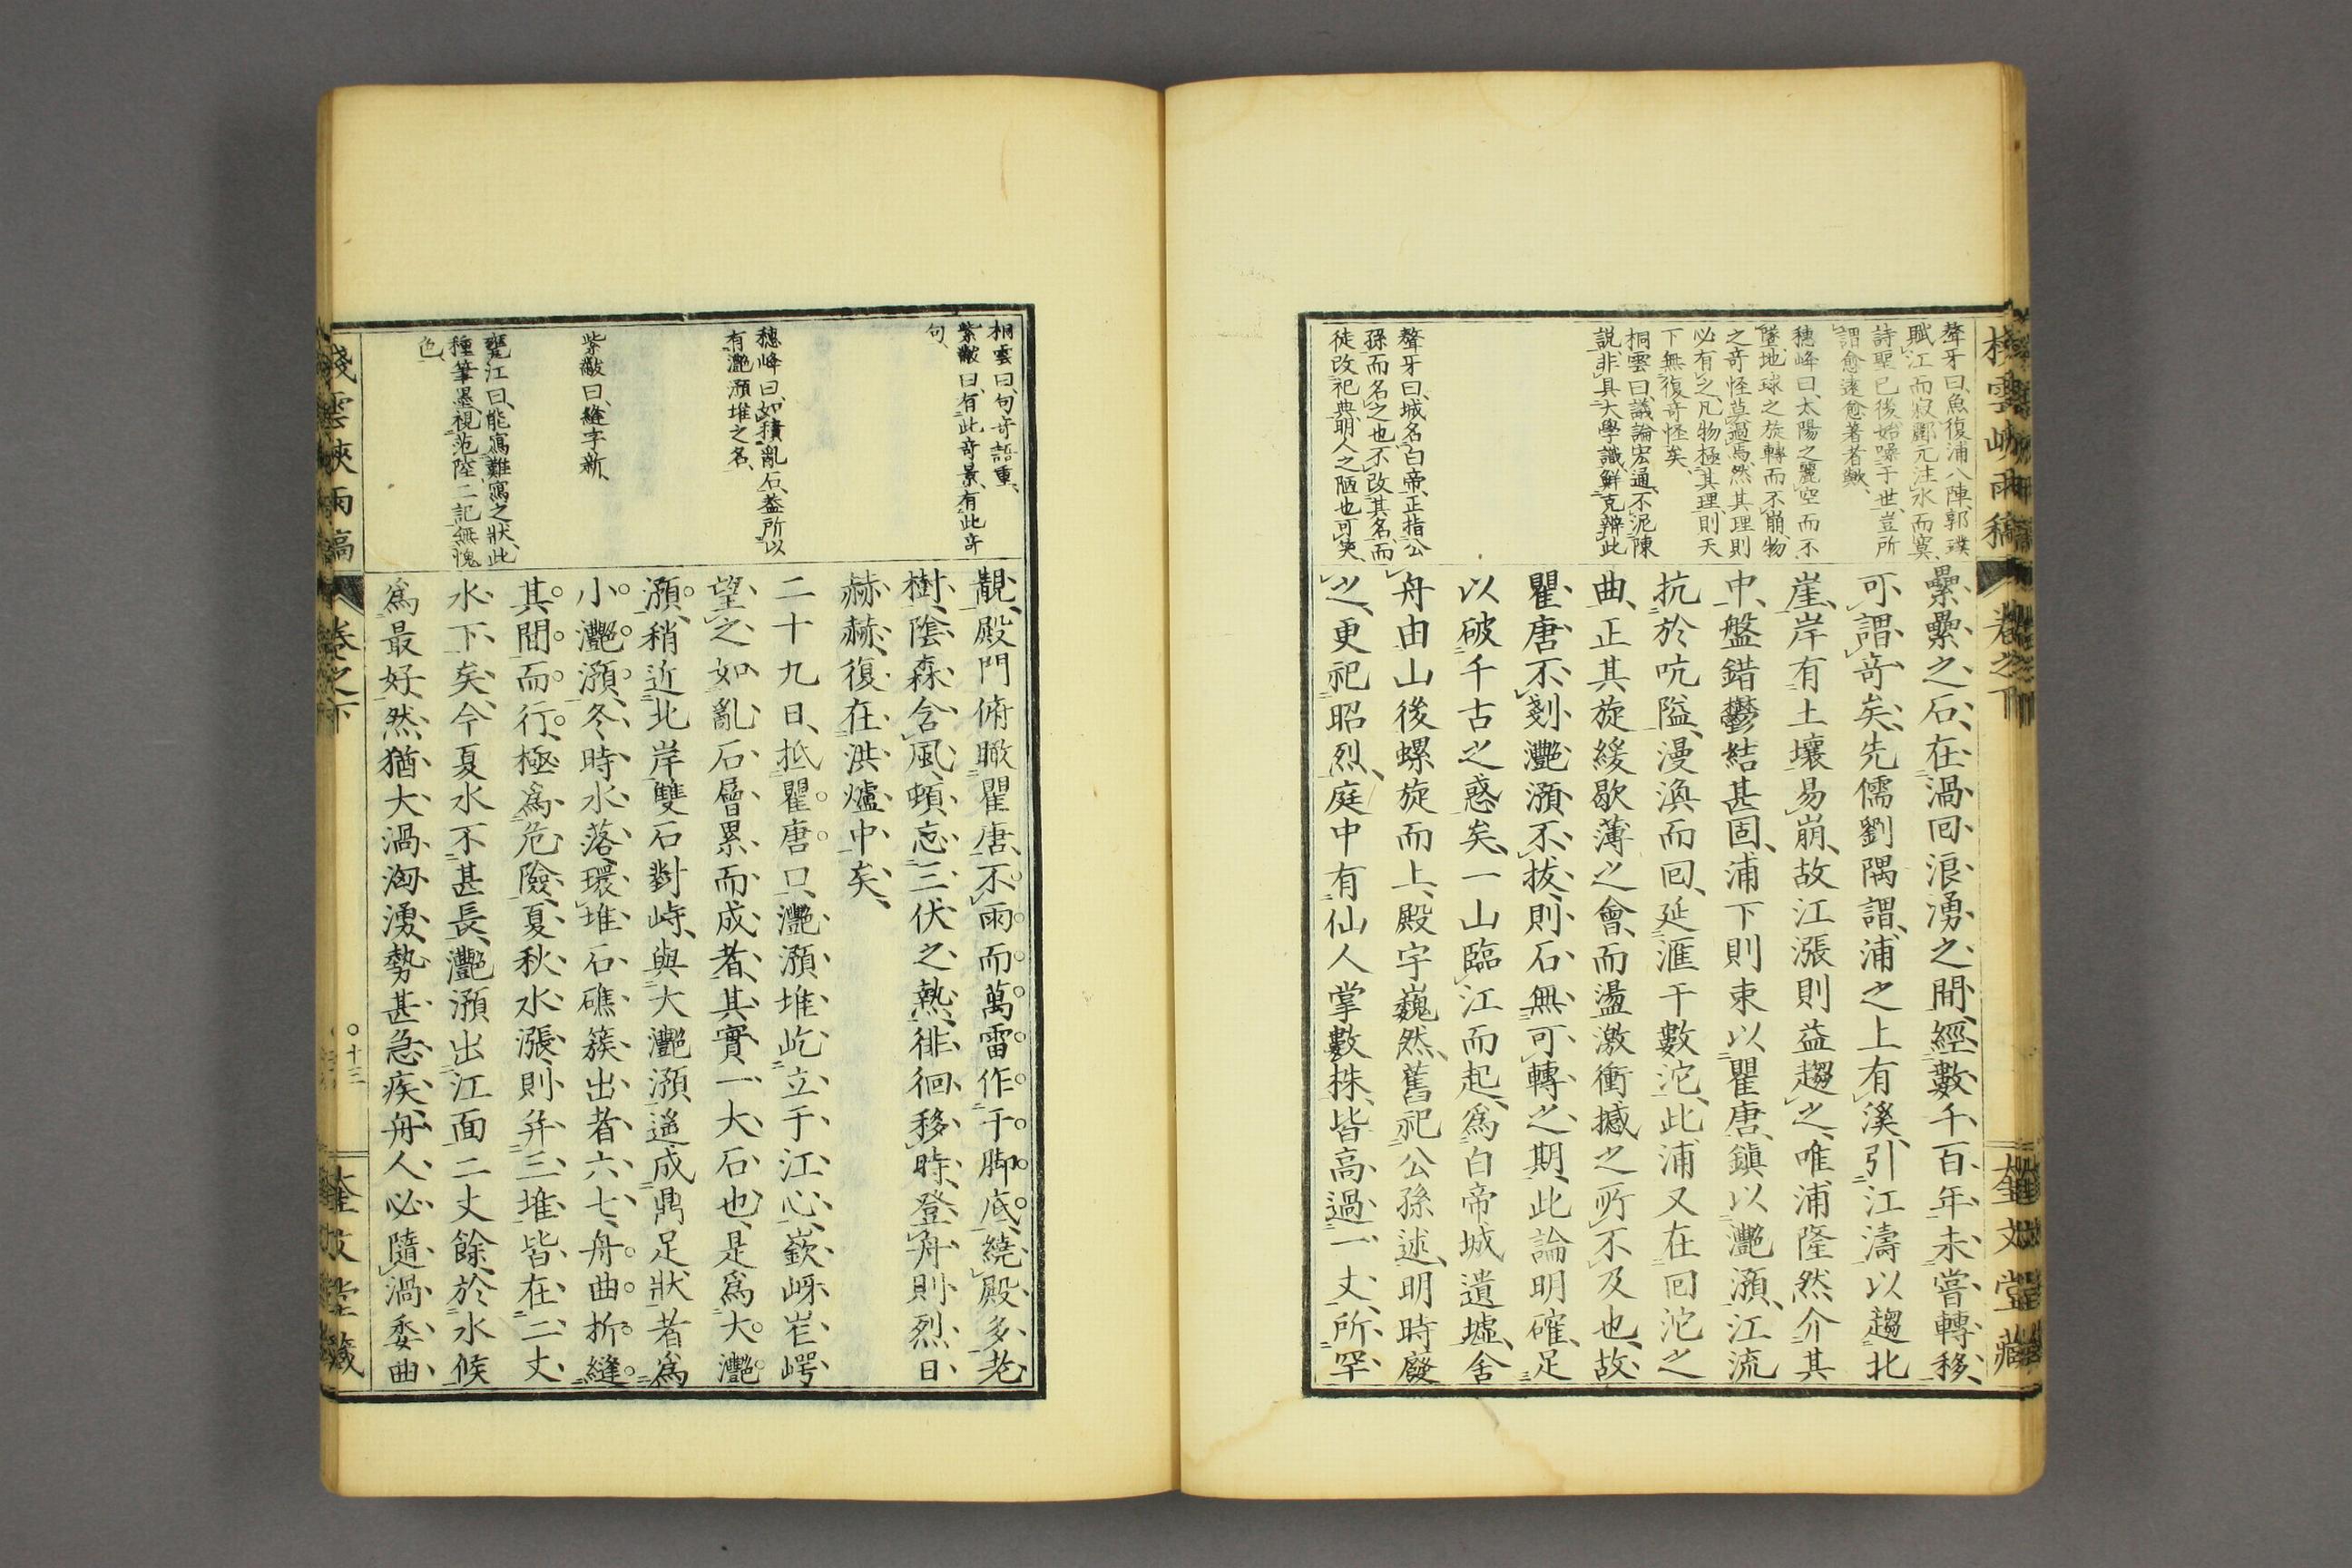 棧雲峽雨稿
卷之下
奎文堂藏
聱牙曰、魚復浦八陣、郭璞
賦江而寂、酈元注水而寞、
詩聖已後、始躁于世、豈所
謂愈遠愈著者歟、
穗峰曰、太陽之麗空而不
墜、地球之旋轉而不崩、物
之奇怪莫過焉、然其理則
必有之、凡物極其理、則天
下無復奇怪矣、
桐雲曰、議論宏通、不泥陳
説、非具大學識、鮮克辨此
聱牙曰、城名白帝、正指公
孫而名之也、不改其名、而
徒改祀典、明人之陋也、可笑
纍纍之石、在渦回浪湧之間、經數千百年、未嘗轉移、
可謂奇矣、先儒劉隅謂、浦之上有溪、引江濤以趨北
崖、岸有土壤易崩、故江漲則益趨之、唯浦隆然介其
中、盤錯鬱結甚固、浦下則束以瞿唐、鎮以灔澦、江流
抗於吭隘、漫渙而回、延滙干數沱、此浦又在回沱之
曲、正其旋緩歇薄之會、而盪激衝撼之所不及也、故
瞿唐不剗、灔澦不拔、則石無可轉之期、此論明確、足
以破千古之惑矣、一山臨江而起、爲白帝城遺墟、舍
舟由山後螺旋而上、殿宇巍然、舊祀公孫述、明時廢
之、更祀昭烈、庭中有仙人掌數株、皆高過一丈、所罕
桐雲曰、句奇語重、
紫巖曰、有此奇景、有此奇
句、
穗峰曰、如積亂石、葢所以
有灔澦堆之名、
紫巖曰、縫字新、
甕江曰、能寫難寫之狀、此
種筆墨、視范陸二記無愧
色、
覩、殿門俯瞰瞿唐、不雨而萬雷作于脚底、繞殿多老
樹、陰森含風、頓忘三伏之熱、徘徊移時、登舟則烈日
赫赫、復在洪爐中矣、
二十九日、抵瞿唐口、灔澦堆屹立于江心、嶔岈崔崿、
望之如亂石層累而成者、其實一大石也、是爲大灔
澦、稍近北岸、雙石對峙、與大灔澦遥成鼎足狀者、爲
小灔澦、冬時水落、環堆石礁簇出者六七、舟曲折縫
其間而行、極爲危險、夏秋水漲、則幷三堆皆在二丈
水下矣、今夏水不甚長、灔澦出江面二丈餘、於水候
爲最好、然猶大渦洶湧、勢甚急疾、舟人必隨渦委曲
棧雲峽雨稿
卷之下
○十三
奎文堂藏